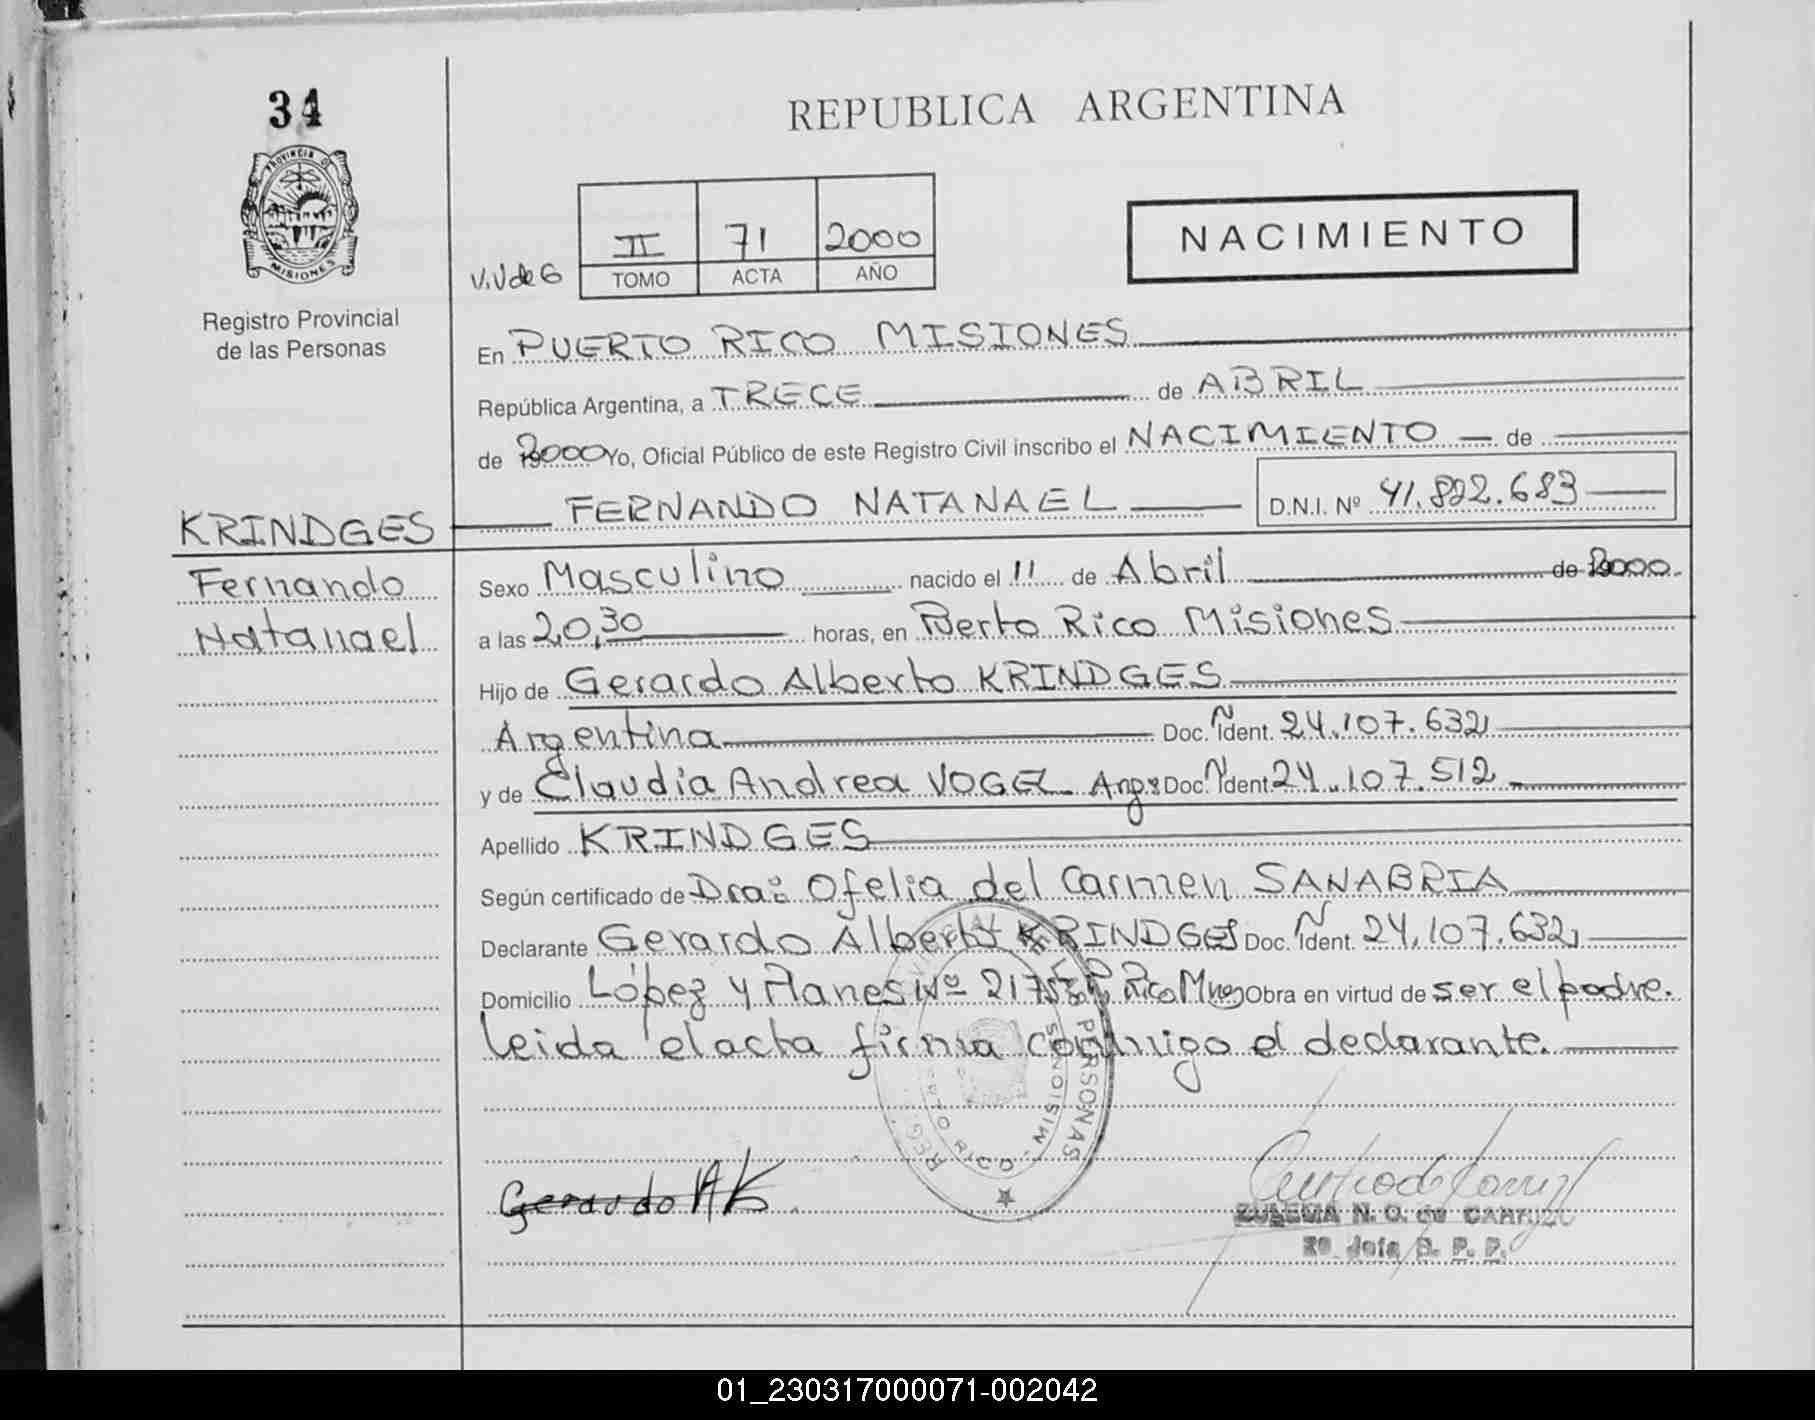 34
REPUBLICA ARGENTINA
PROVINCIA DE
MISIONES
Registro Provincial
de las Personas
V.V de G
II 71 2000
TOMO ACTA AÑO
NACIMIENTO
En PUERTO RICO MISIONES
República Argentina, a TRECE de ABRIL
de 2000 Yo, Oficial Público de este Registro Civil inscribo el NACIMIENTO de
FERNANDO NATANAEL D.N.I. Nº 41.892.683
KRINDGES
Fernando
Natanael
Sexo Masculino nacido el 11 de Abril de 2000
a las 20,30 horas, en Puerto Rico Misiones
Hijo de Gerardo Alberto KRINDGES
Argentina Doc. Ident. 24.107.632
y de Claudia Andrea VOGEL Arg: Doc. Ident. 24.107.512
Apellido KRINDGES
Según certificado de Dra: Ofelia del Carmen SANABRIA
Declarante Gerardo Alberto KRINDGES Doc. Ident. 24.107.632
Domicilio López y Planes Nº Rico Mnes Obra en virtud de ser el padre.
leida el acta firma conmigo el declarante.
PERSONAS
PUERTO RICO - MISIONES
Gerardo AK
ZULEMA N. O. de CARRIZO
2º Jefa R. P. P.
01_230317000071-002042